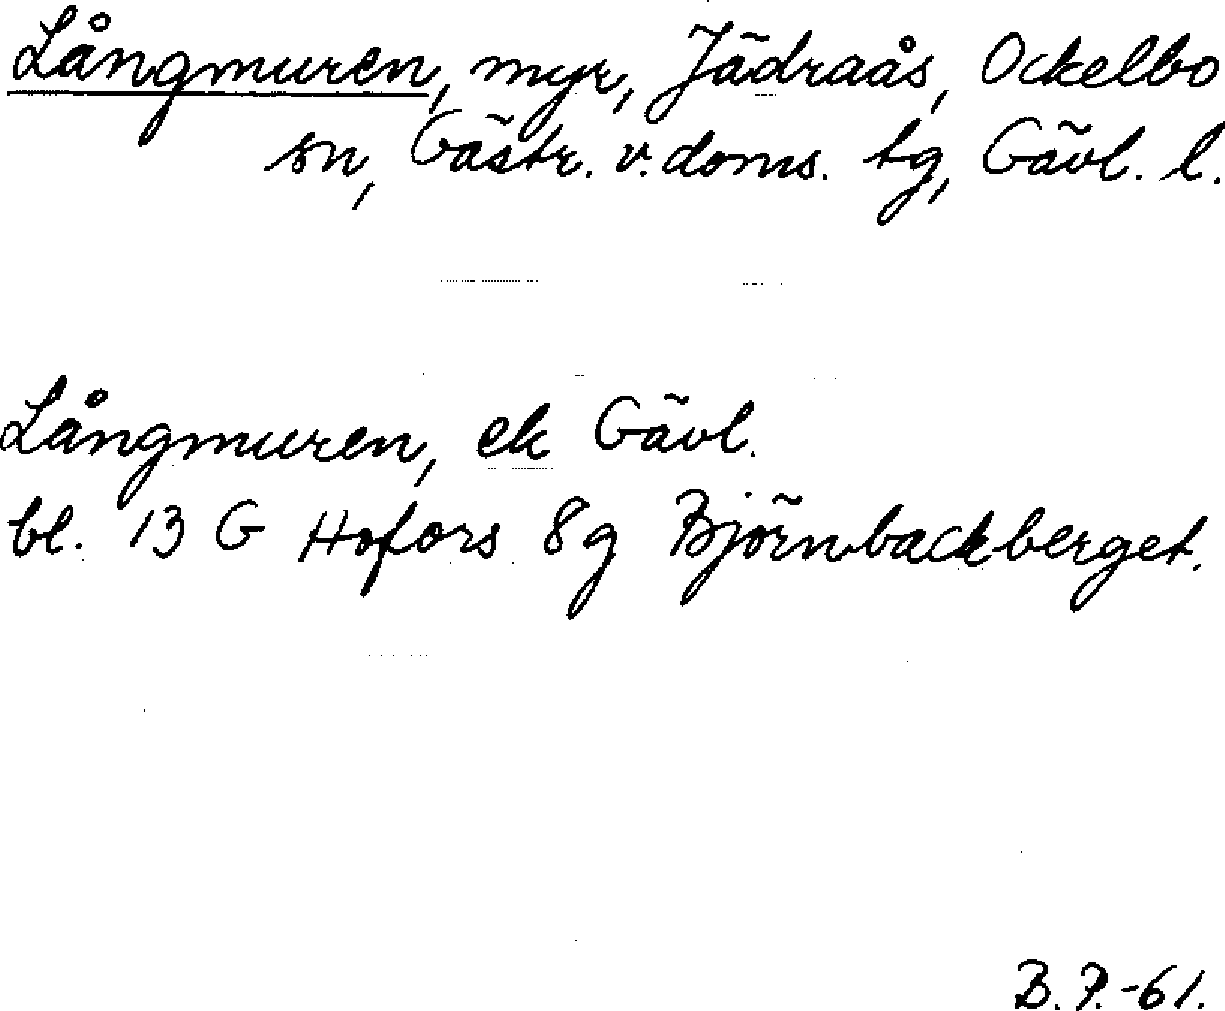 Långmuren, myr, Jädraås, Ockelbo
sn, Gästr. v. doms. tg, Gävl. l.
Långmuren, ek Gävl.
bl. 13 G Hofors 8g Björnbackberget.
B. P. -61.